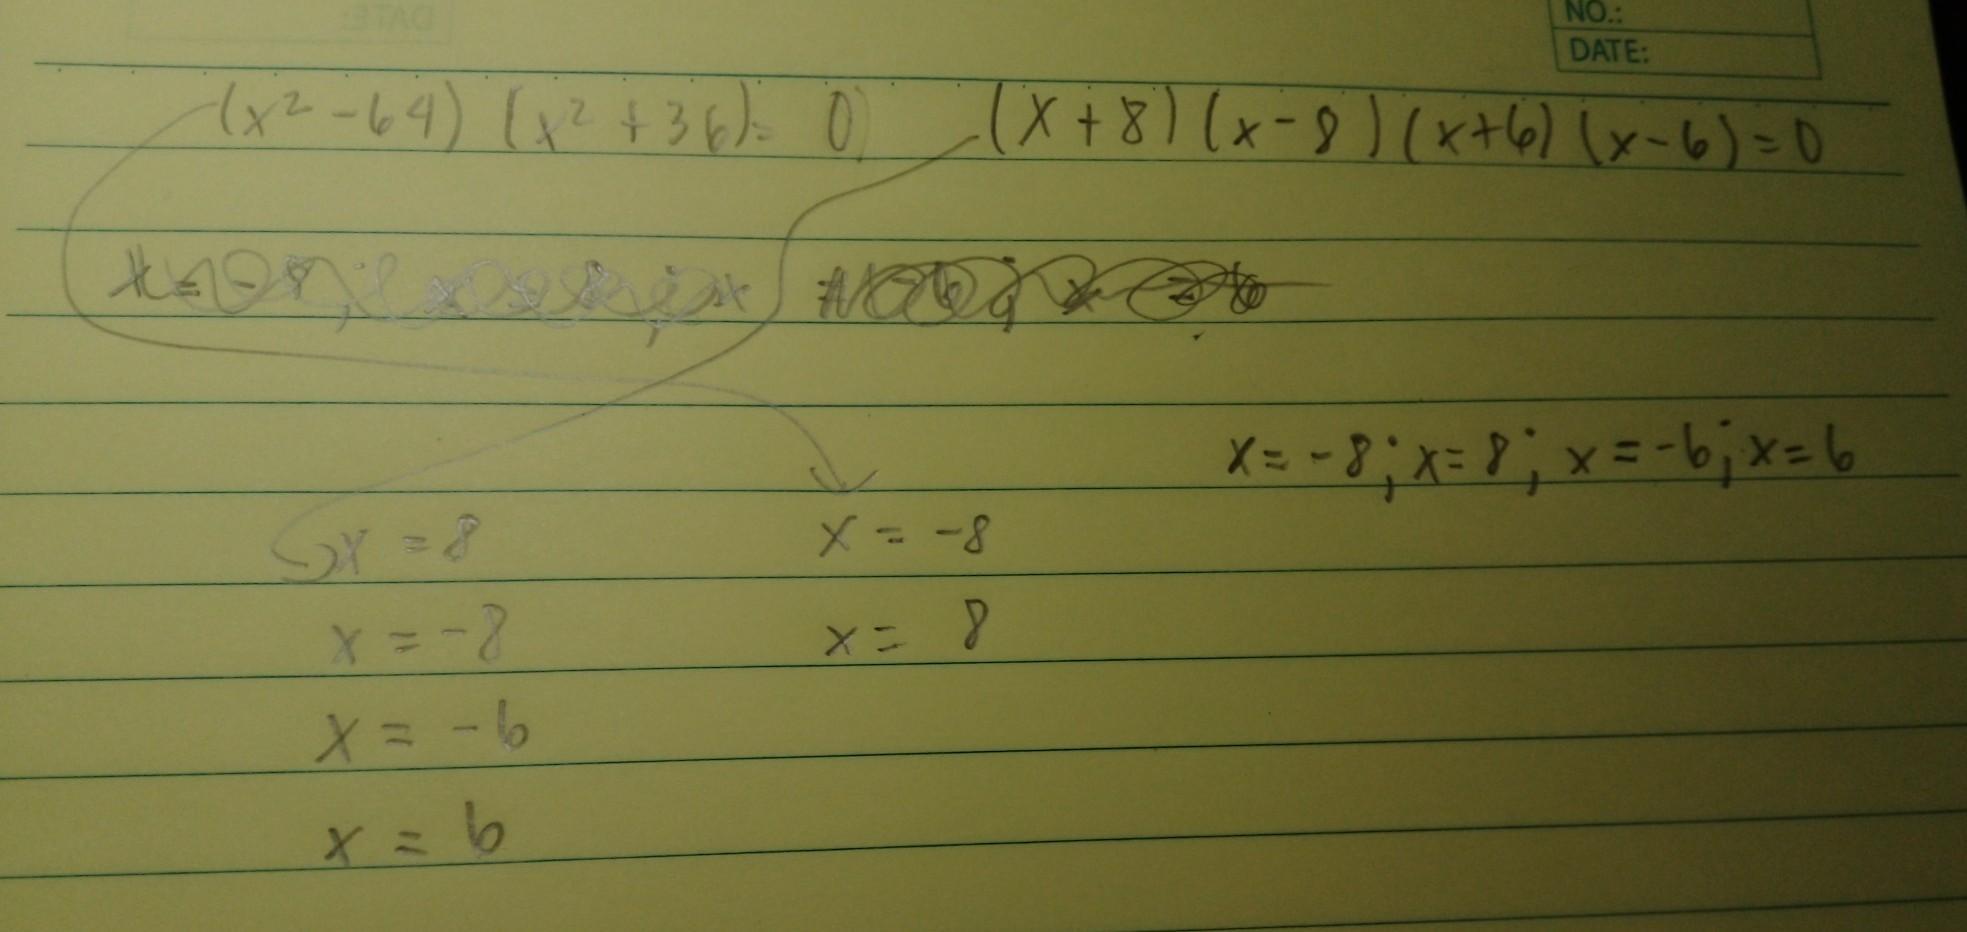 NO.:
DATE:
(x² -64) (x² +36)= 0
(x+8)(x-8)(x+6)(x-6)=0
x=-8; x=8; x=-6; x=6
x = 8
x = -8
x = -8
x = 8
x = -6
x = 6